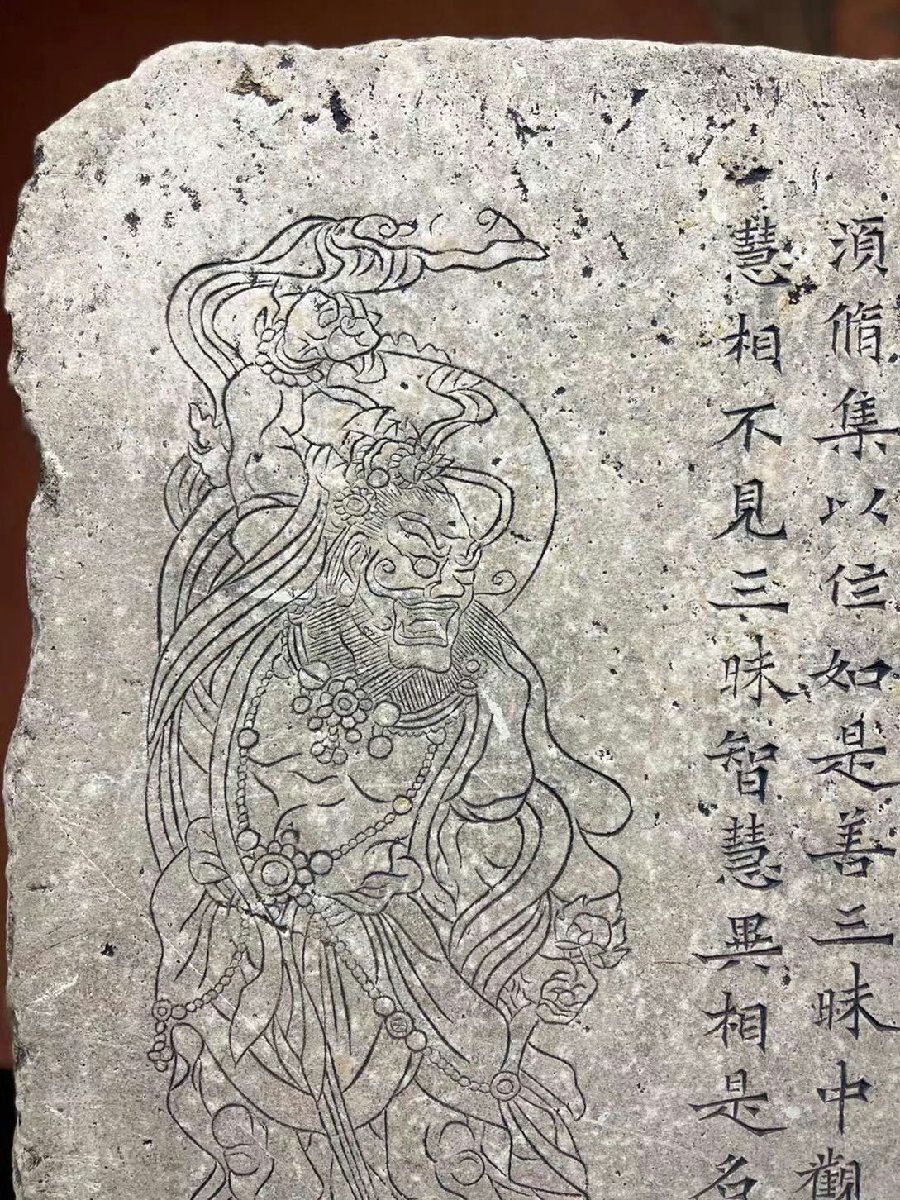 湏脩集以住如是善三昧中觀
慧相不見三昧智慧異相是名